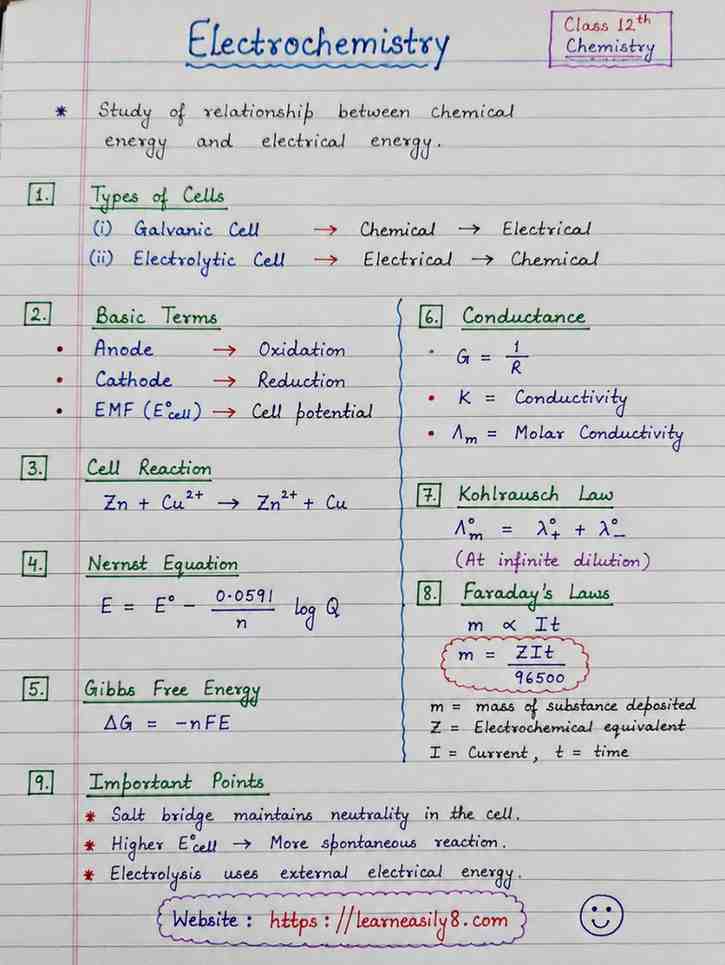 Electrochemistry
Class 12th
Chemistry
* Study of relationship between chemical
energy and electrical energy.
1. Types of Cells
(i) Galvanic Cell → Chemical → Electrical
(ii) Electrolytic Cell → Electrical → Chemical
2. Basic Terms
• Anode → Oxidation
• Cathode → Reduction
• EMF (E°cell) → Cell potential
3. Cell Reaction
Zn + Cu²⁺ → Zn²⁺ + Cu
4. Nernst Equation
E = E° - 0.0591/n log Q
5. Gibbs Free Energy
ΔG = -nFE
6. Conductance
• G = 1/R
• K = Conductivity
• Λm = Molar Conductivity
7. Kohlrausch Law
Λ°m = λ°+ + λ°-
(At infinite dilution)
8. Faraday's Laws
m ∝ It
m = ZIt/96500
m = mass of substance deposited
Z = Electrochemical equivalent
I = Current, t = time
9. Important Points
* Salt bridge maintains neutrality in the cell.
* Higher E°cell → More spontaneous reaction.
* Electrolysis uses external electrical energy.
Website : https://learneasily8.com